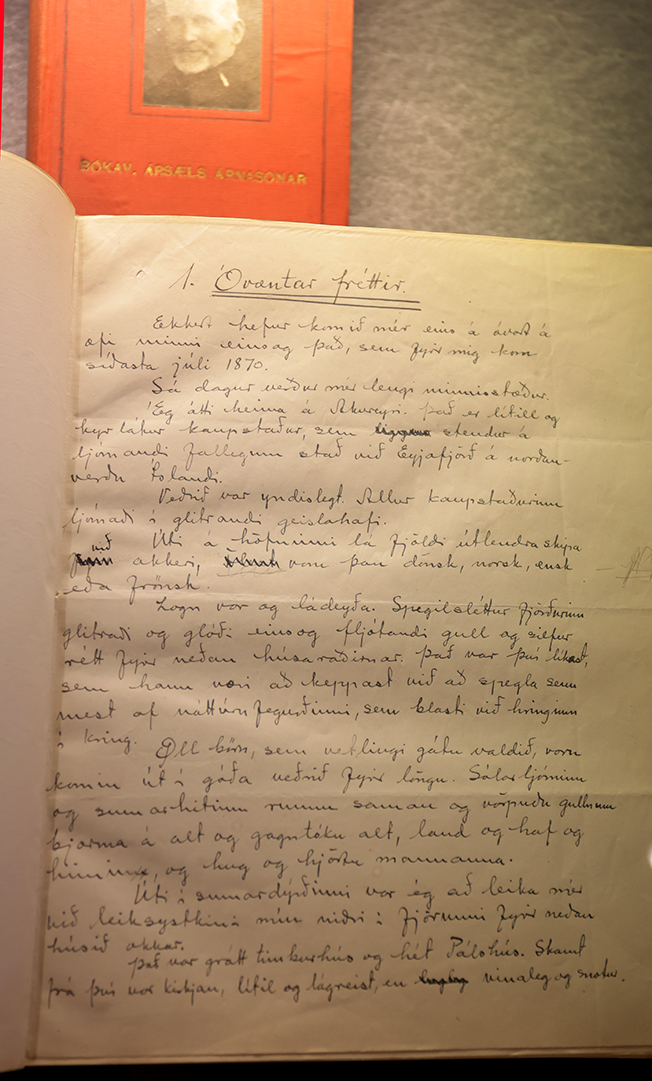 BÓKAV. ÁRSÆLS ÁRNASONAR
1. Óvæntar fréttir.
Ekkert hefur komið mér eins á óvart á
æfi minni einsog það, sem fyrir mig kom
síðasta júlí 1870.
Sá dagur verður mér lengi minnisstæður.
Ég átti heima á Akureyri. Það er lítill og
kyrlátur kaupstaður, sem liggur stendur á
ljómandi fallegum stað við Eyjafjörð á norðan-
verðu Íslandi.
Veðrið var yndislegt. Allur kaupstaðurinn
ljómaði í glitrandi geislahafi.
Úti á höfninni lá fjöldi útlendra skipa
við akkeri, voru þau dönsk, norsk, ensk
eða frönsk.
Logn var og ládeyða. Spegilsléttur fjörðurinn
glitraði og glóði einsog fljótandi gull og silfur
rétt fyrir neðan húsaraðirnar. Það var því líkast,
sem hann væri að keppast við að spegla sem
mest af náttúrufegurðinni, sem blasti við hringinn
í kring. Öll börn, sem vetlingi gátu valdið, voru
komin út í góða veðrið fyrir löngu. Sólarljóminn
og sumarhitinn runnu saman og vörpuðu gullnum
bjarma á alt og gagntóku alt, land og haf og
himinn, og hug og hjörtu mannanna.
Úti í sumardýrðinni var ég að leika mér
við leiksystkini mín niðri í fjörunni fyrir neðan
húsið okkar.
Það var grátt timburhús og hét Pálshús. Skamt
frá því var kirkjan, lítil og lágreist, en vinaleg og snotur.